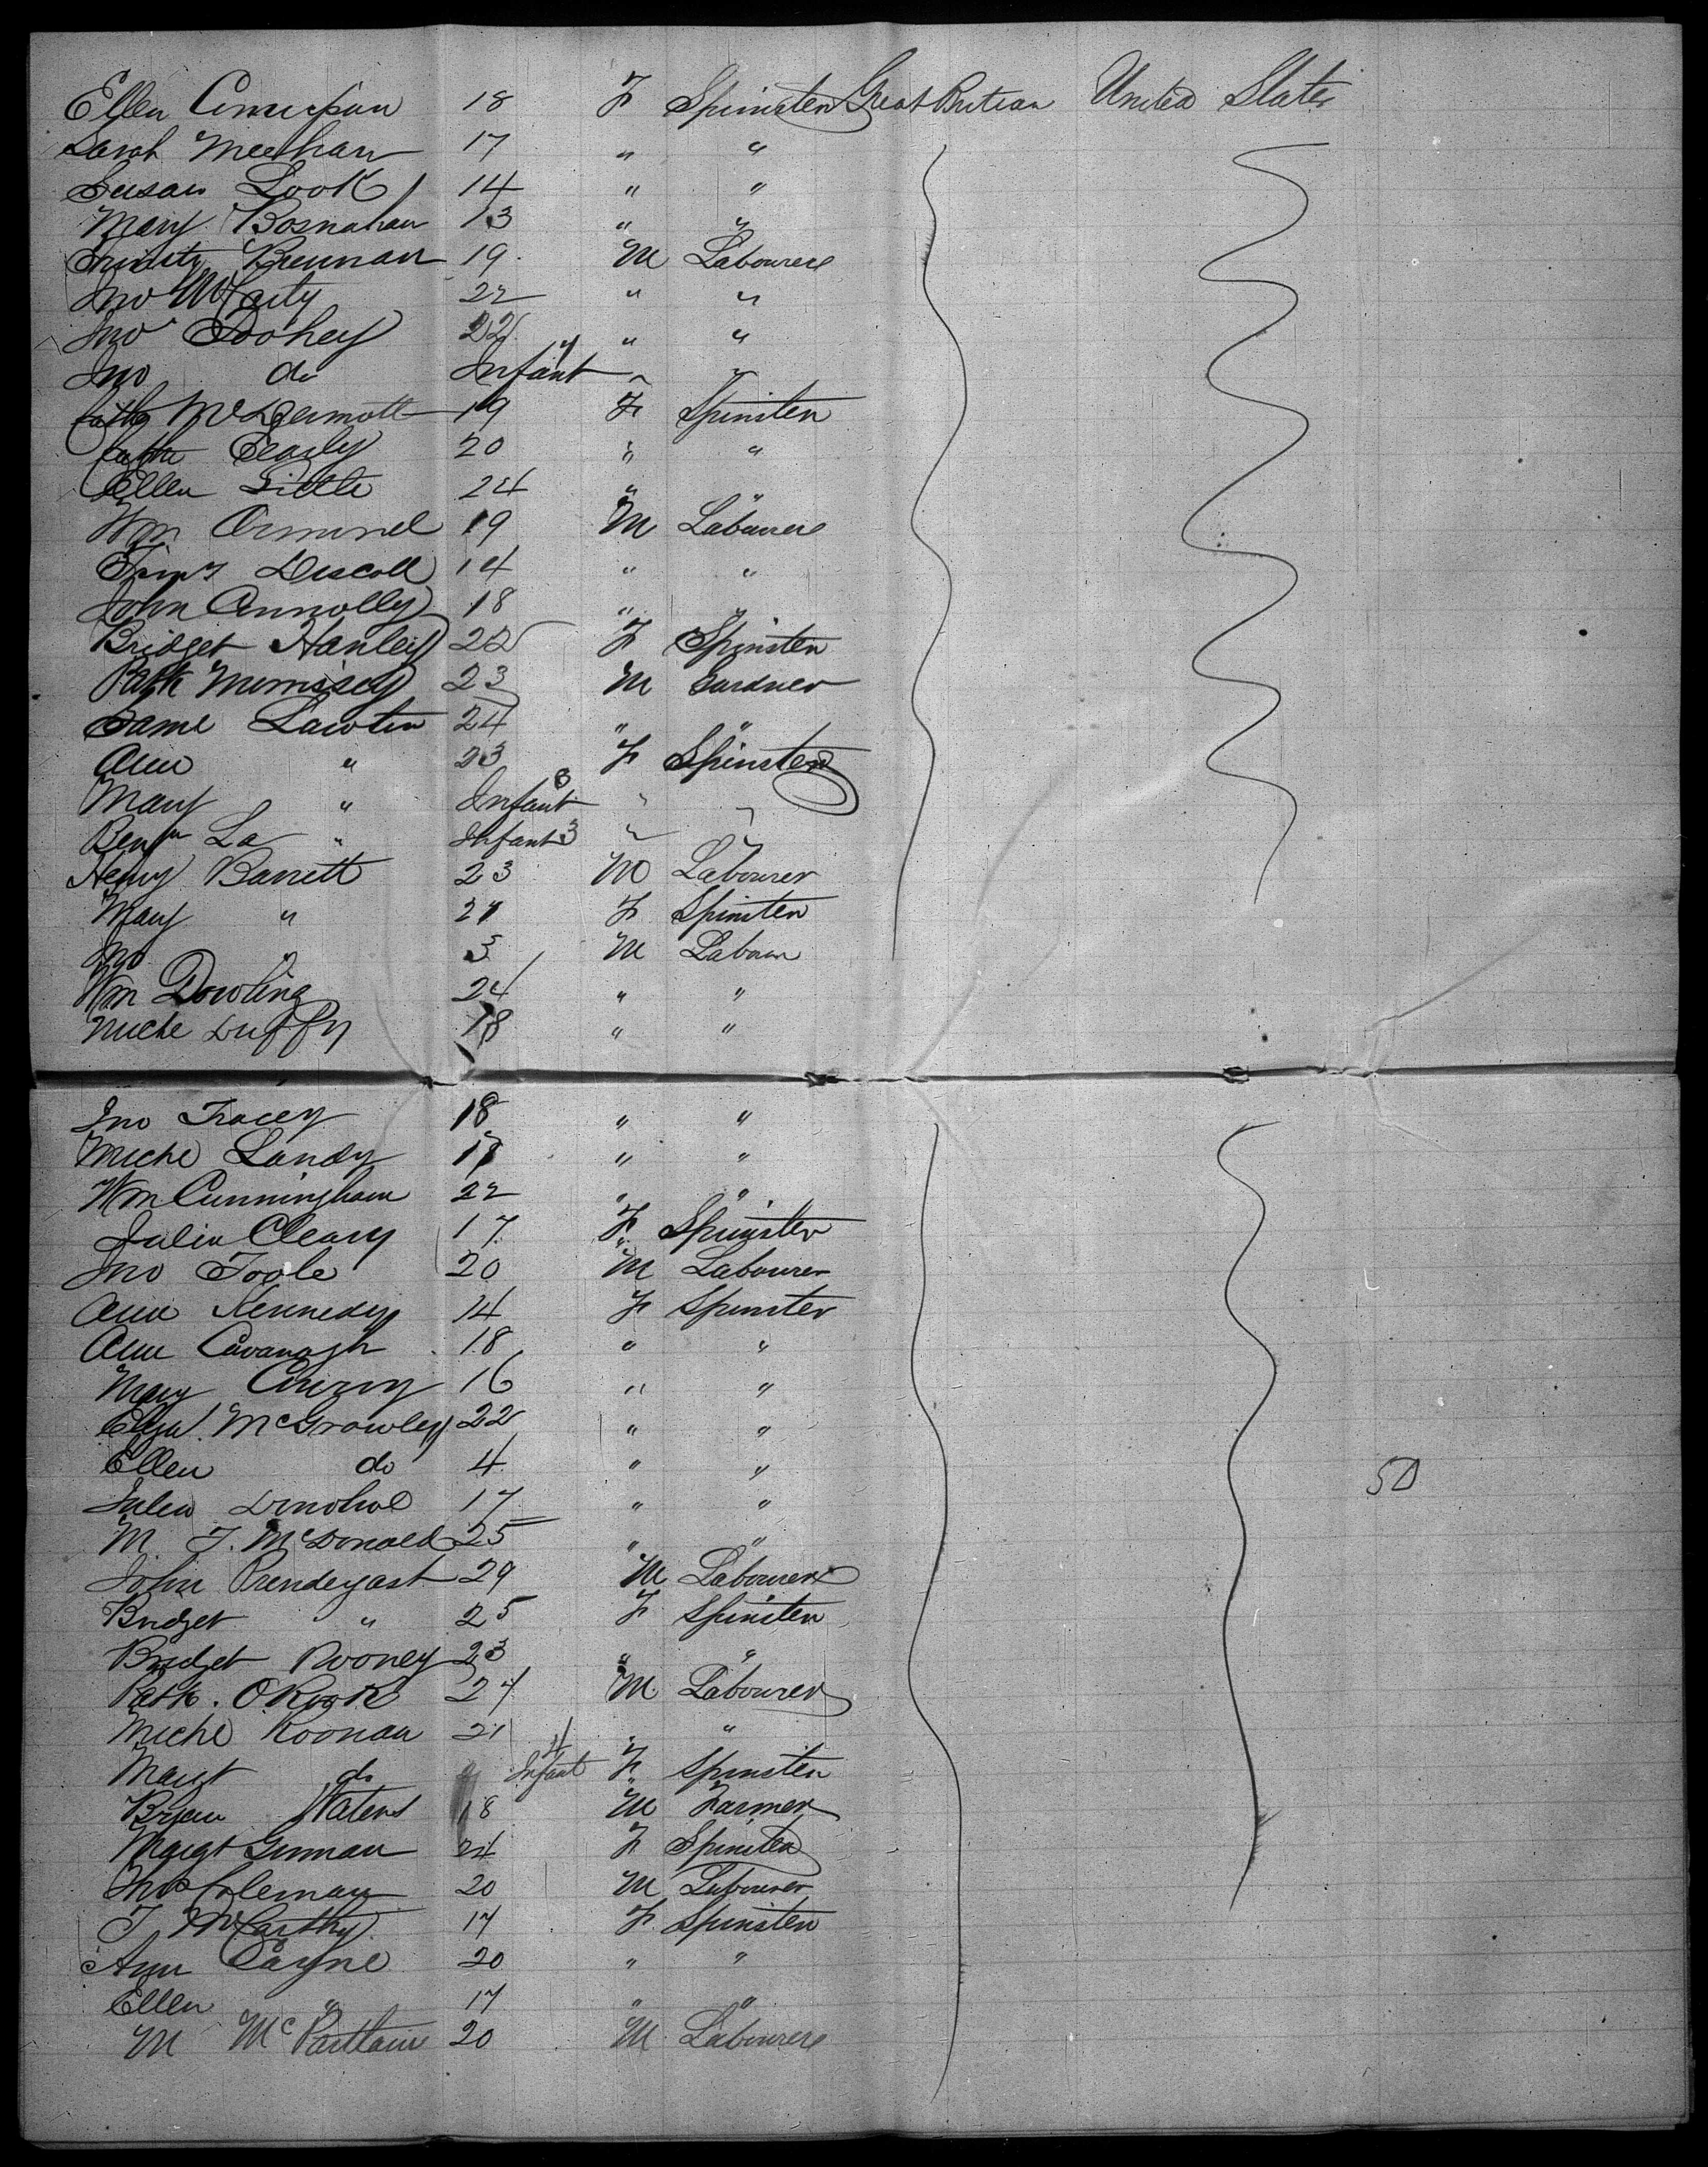 Ellen 18 F Spinster Great Britian United States
Sarah Meehan 17 " "
Susan Look 14 " "
Mary Bosnahan 13 " "
Brennan 19 M Labourer
Jno McCarty 22 " "
Jno Doohey 22 " "
Jno do Infant " "
Cath McDermott 19 F Spinster
Cath Early 20 " "
Ellen Little 24 " "
Wm 19 M Labourer
Driscoll 14 " "
John Connolly 18 " "
Bridget Hanley 22 F Spinster
Patk Morrissey 23 M Gardner
Lawton 24 " "
Ann " 23 F Spinster
Mary " Infant 8 " "
Benjn La " Infant 3 " "
Henry Barrett 23 M Labourer
Mary " 21 F Spinster
Jno " 3 M Labour
Wm Dowling 24 " "
Michl Duffy 18 " "
Jno Tracey 18 " "
Michl Landy 18 " "
Wm Cunningham 22 " "
Julia Cleary 17 F Spinster
Jno Toole 20 M Labourer
Ann Kennedy 14 F Spinster
Ann Cavanagh 18 " "
Mary 16 " "
Eliza McGrowley 22 " "
Ellen do 4 " "
Julia Donohoe 17 " "
M T. McDonald 25 " "
John Prendergast 29 M Labourer
Bridget " 25 F Spinster
Bridget Rooney 23 " "
Patk. O'Rook 24 M Labourer
Michl Noonan 21 " "
Margt do Infant 4 F Spinster
Bryan Waters 18 M Farmer
Margt 24 F Spinster
Coleman 20 M Labourer
T McCarthy 17 F Spinster
Ann Cayne 20 " "
Ellen " 17 " "
M McPartlain 20 M Labourer
50